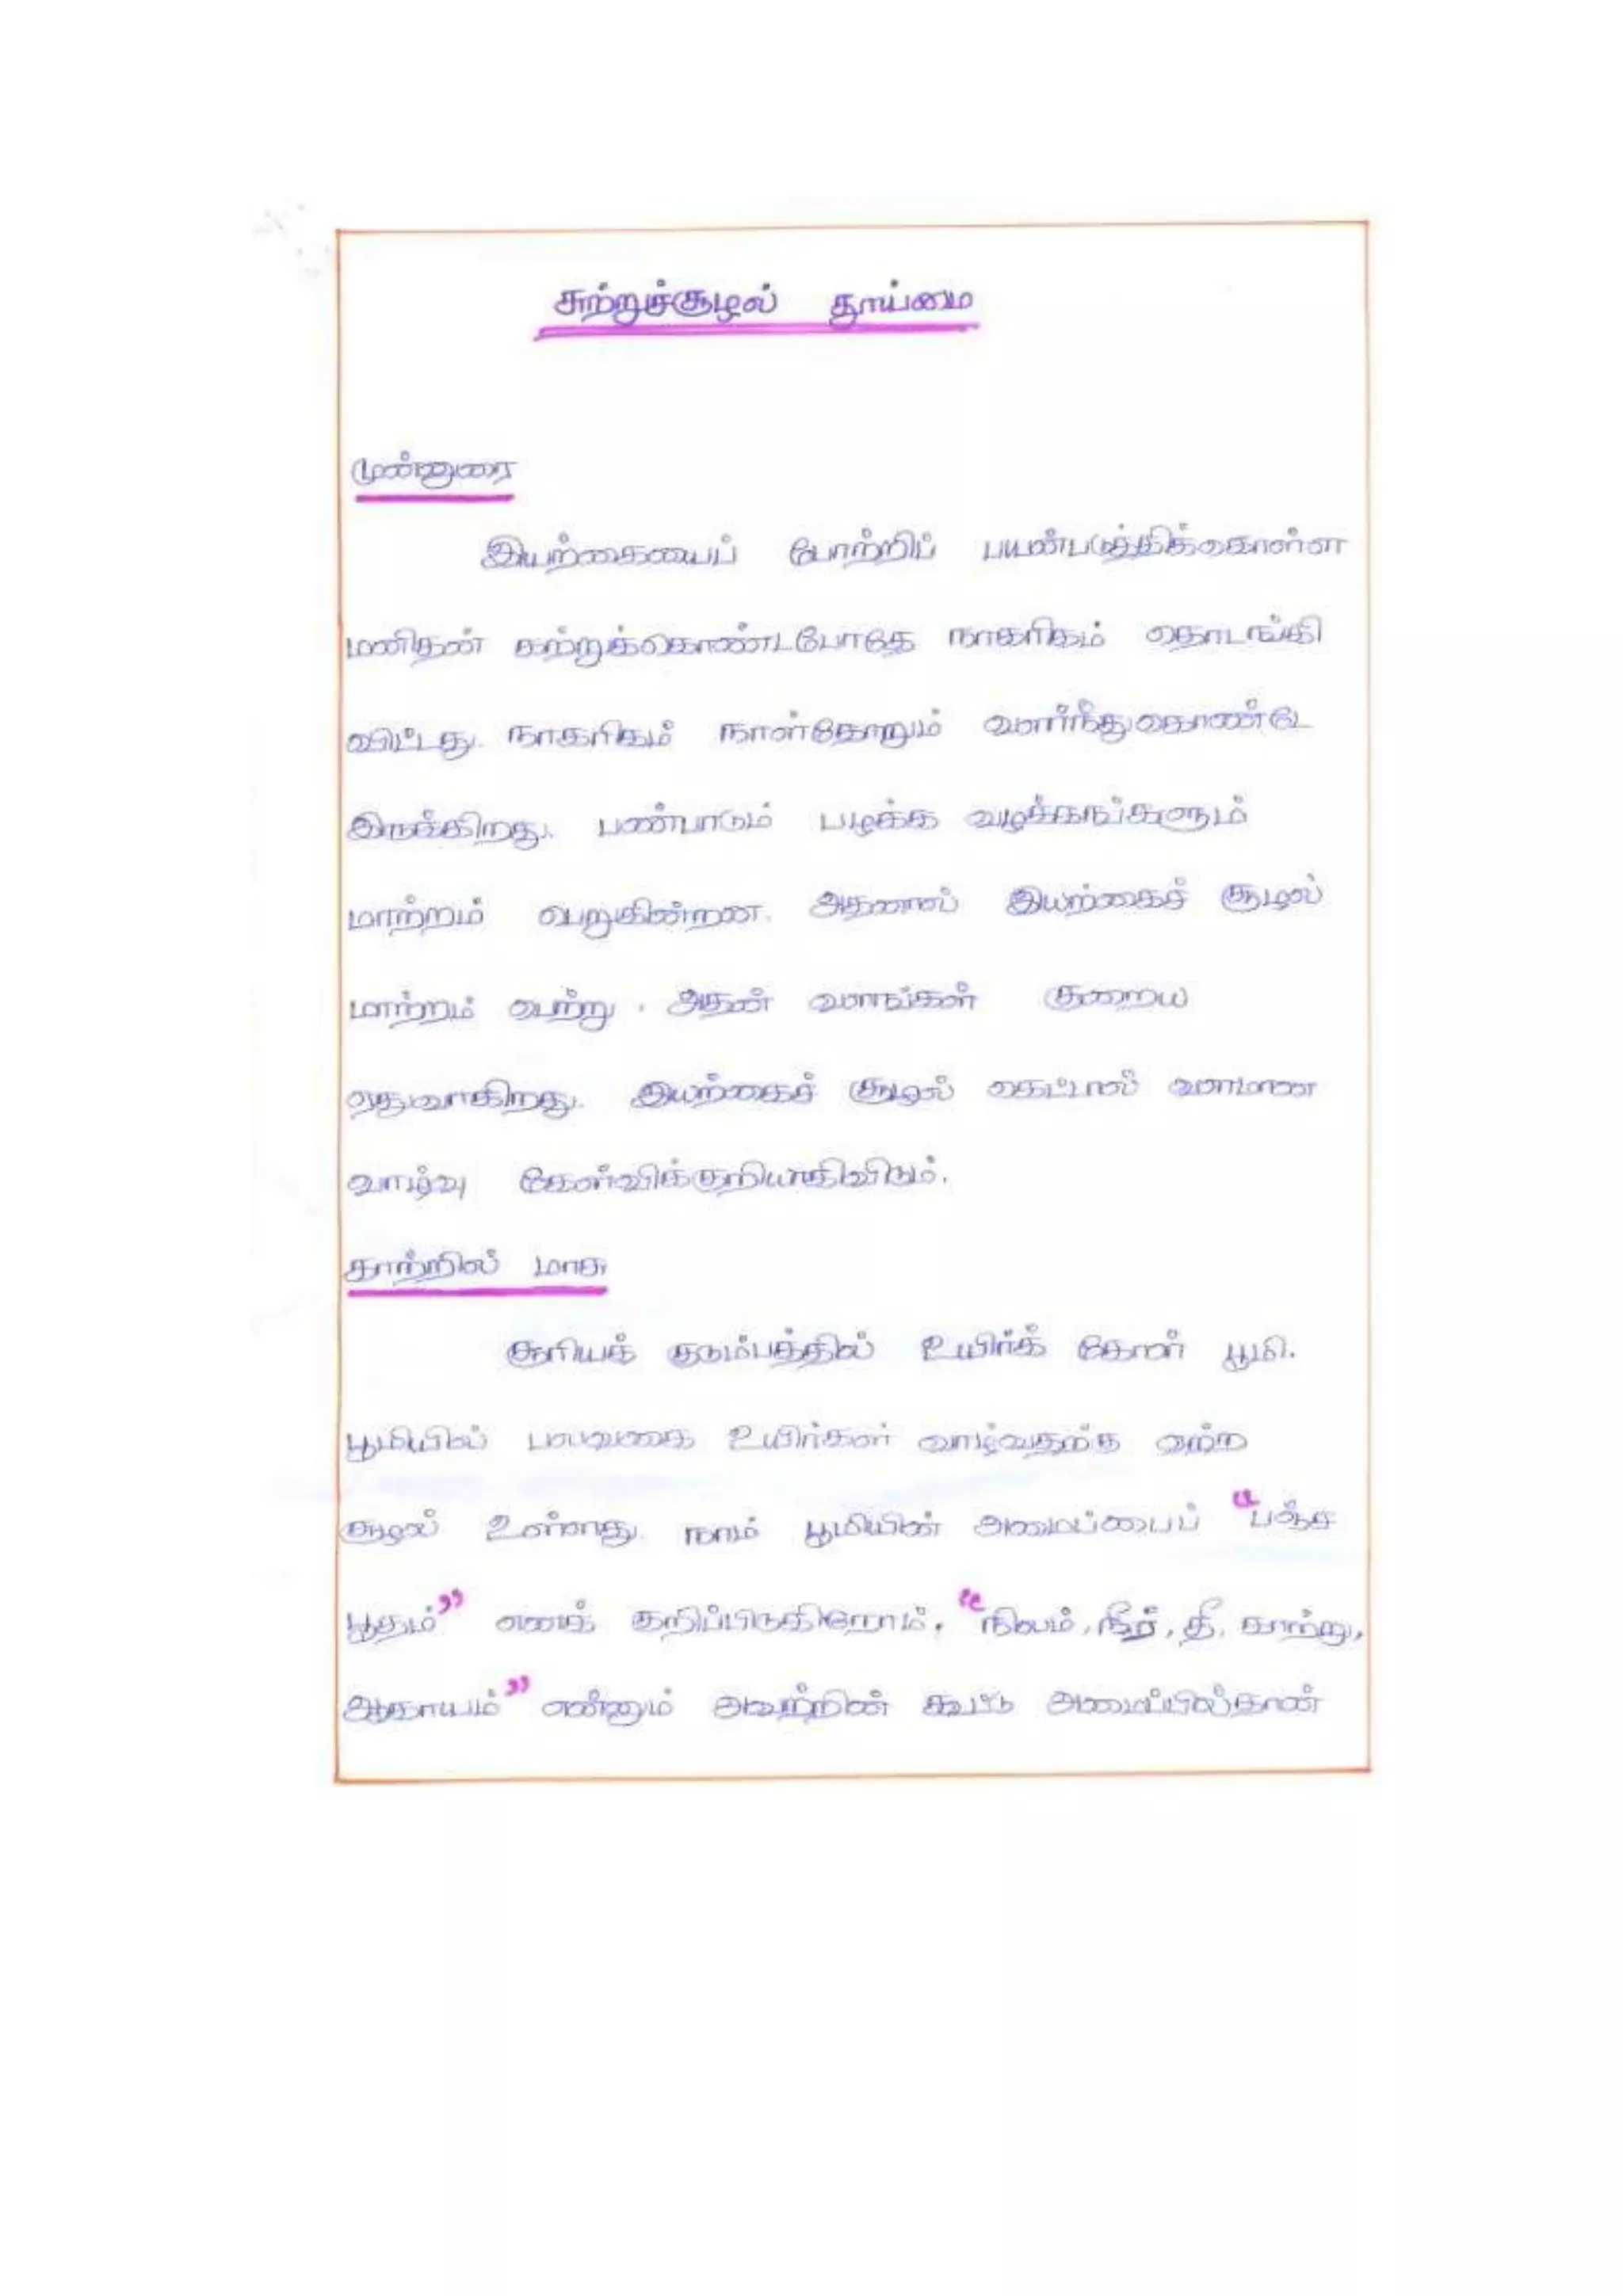 சுற்றுச்சூழல் தூய்மை
முன்னுரை
இயற்கையைப் போற்றிப் பயன்படுத்திக்கொள்ள
மனிதன் கற்றுக்கொண்டபோதே நாகரிகம் தொடங்கி
விட்டது. நாகரிகம் நாள்தோறும் வளர்ந்துகொண்டே
இருக்கிறது. பண்பாடும் பழக்க வழக்கங்களும்
மாற்றம் பெறுகின்றன. அதனால் இயற்கைச் சூழல்
மாற்றம் பெற்று. அதன் வளங்கள் குறைய
ஏதுவாகிறது. இயற்கைச் சூழல் கெட்டால் வளமான
வாழ்வு கேள்விக்குறியாகிவிடும்.
காற்றில் மாசு
சூரியக் குடும்பத்தில் உயிர்க் கோள் பூமி.
பூமியில் பலவகை உயிர்கள் வாழ்வதற்கு ஏற்ற
சூழல் உள்ளது. நாம் பூமியின் அமைப்பைப் "பஞ்ச
பூதம்" எனக் குறிப்பிடுகிறோம். "நிலம், நீர், தீ, காற்று,
ஆகாயம்" என்னும் அவற்றின் கூட்டு அமைப்பில்தான்